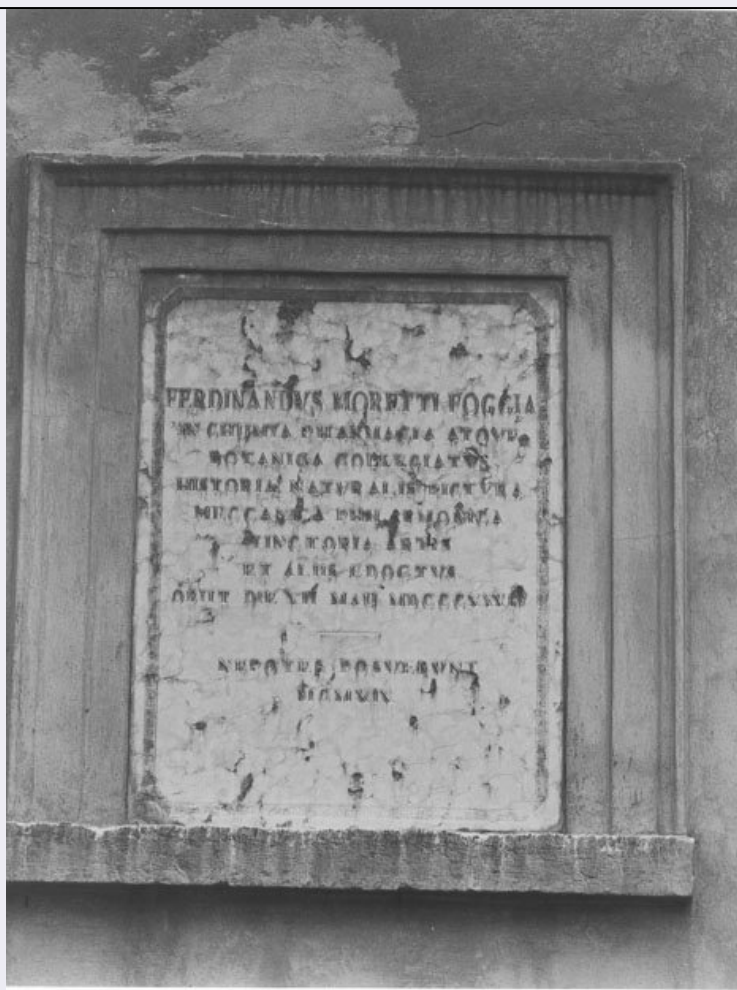 FERDINANDVS MORETTI FOGGIA
IN CHIMIA PHARMACIA ATQVE
BOTANICA COLLEGIATVS
HISTORIA NATVRALIS PICTVRA
MECCANICA
TINCTORIA
ET ALIIS EDOCTVS
OBIIT DIE VII MAII
NEPOTES POSVERVNT